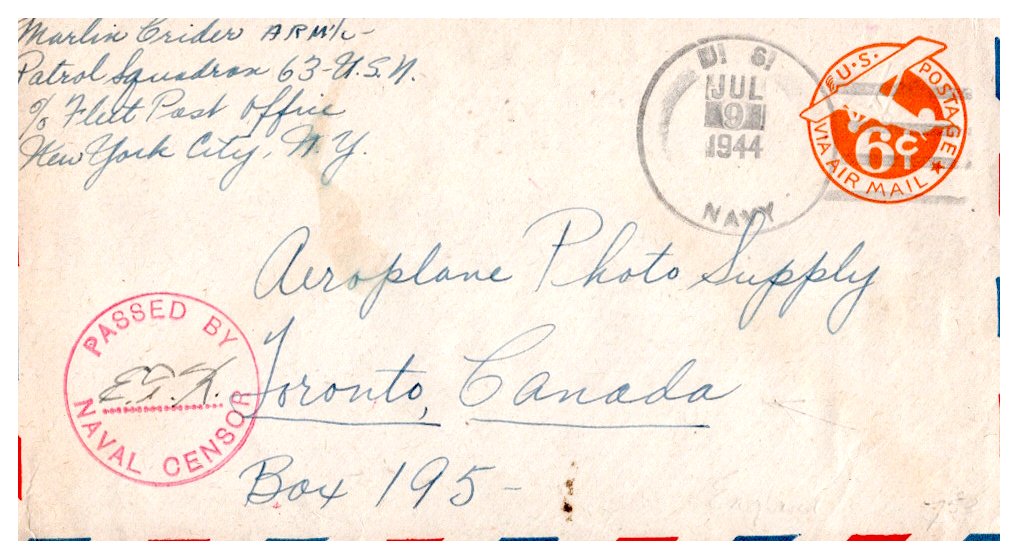 Marlin Crider ARM1/c -
Patrol Squadron 63 - U.S.N.
c/o Fleet Post Office
New York City, N.Y.
JUL
9
1944
NAVY
U.S. POSTAGE
6¢
VIA AIR MAIL
Aeroplane Photo Supply
PASSED BY
E.T.K.
NAVAL CENSOR
Toronto, Canada
Box 195 -
England